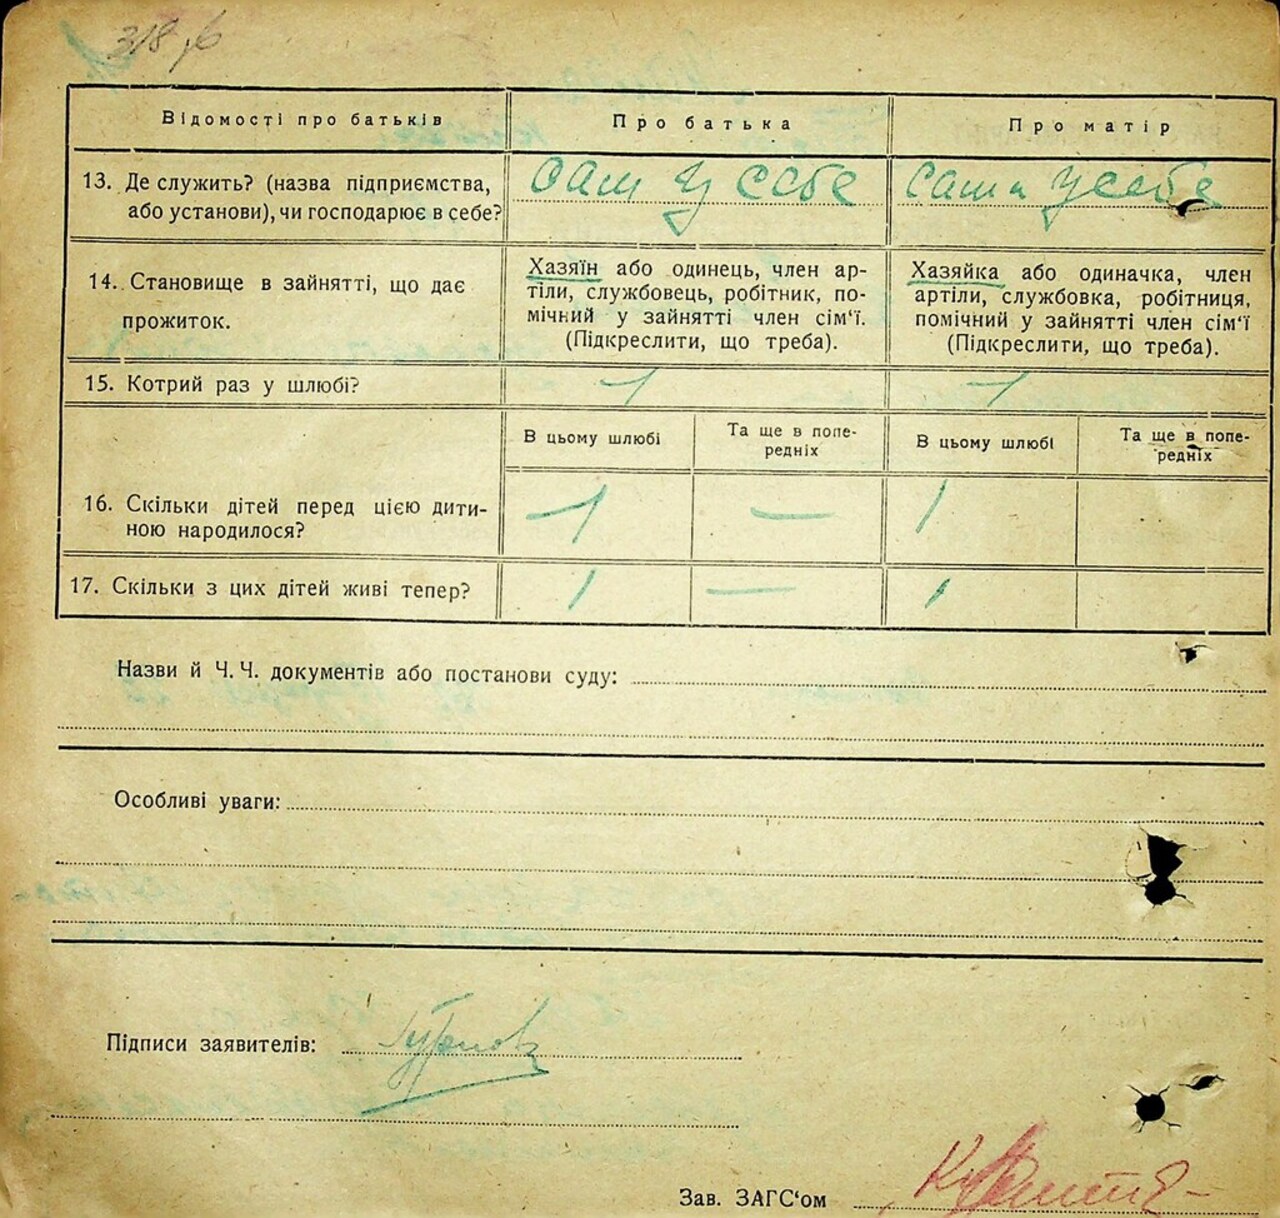 318 уб
Відомості про батьків
Про батька
Про матір
13. Де служить? (назва підприємства,
або установи), чи господарює в себе?
сам у себе
сама у себе
14. Становище в зайнятті, що дає
прожиток.
Хазяїн або одинець, член ар-
тіли, службовець, робітник, по-
мічний у зайнятті член сім‘ї.
(Підкреслити, що треба).
Хазяйка або одиначка, член
артіли, службовка, робітниця,
помічний у зайнятті член сім‘ї
(Підкреслити, що треба).
15. Котрий раз у шлюбі?
1
1
В цьому шлюбі
Та ще в попе-
редніх
В цьому шлюбі
Та ще в попе-
редніх
16. Скільки дітей перед цією дити-
ною народилося?
1 — 1
17. Скільки з цих дітей живі тепер?
1 — 1
Назви й Ч. Ч. документів або постанови суду:
Особливі уваги:
Підписи заявителів:
Зав. ЗАГС‘ом